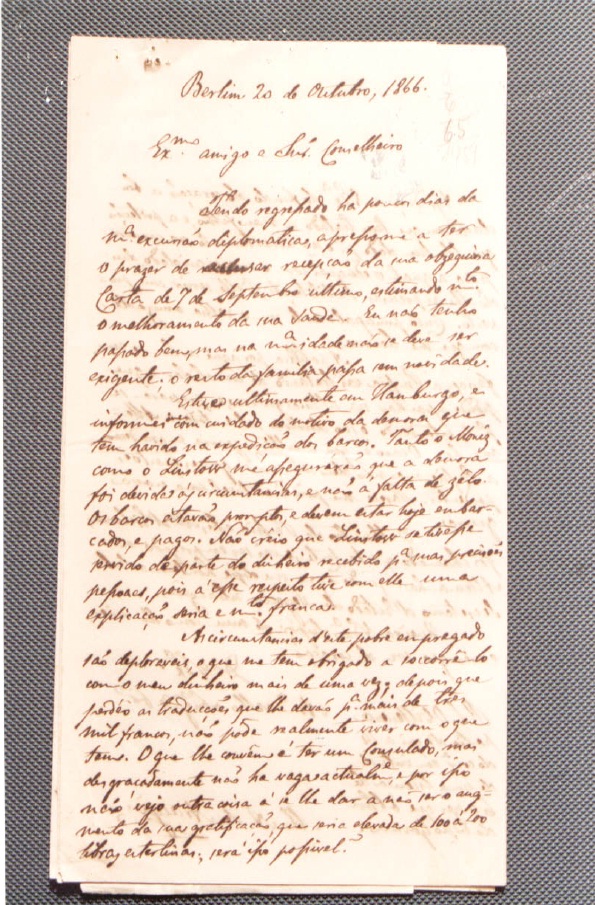 Berlim 20 de Outubro, 1866.
65
Ex.mo amigo e Snr. Conselheiro
Tendo regressado ha poucos dias da
m.a excursão diplomatica, apresso-me a ter
o prazer de accusar recepção da sua obzequiosa
Carta de 7 de Septembro ultimo, estimando m.to
o melhoramento da sua saude. Eu não tenho
passado bem, mas na m.a idade não se deve ser
exigente; o resto da familia passa sem novidade.
Estive ultimamente em Hamburgo, e
informei com cuidado do motivo da demora que
tem havido na expedição dos barcos. Tanto o Moniz
como o Linstow me assegurarão que a demora
foi devida ás circunstancias, e não á falta de zêlo.
Os barcos estavão promptos, e devem estar hoje embar-
cados, e pagos. Não creio que Linstow se tivesse
servido de parte do dinheiro recebido p.a suas precisões
pessoaes, pois a esse respeito tive com elle uma
explicação seria e m.to franca.
As circunstancias d'este pobre empregado
são deploraveis, o que me tem obrigado a soccorrê-lo
com o meu dinheiro mais de uma vez; depois que
perdêo as traducções, que lhe davão p.a mais de tres
mil francos, não póde realmente viver com o que
tem. O que lhe convêm é ter um Consulado, mas
desgraçadamente não ha vagas actualm.e, e por isso
não vejo outra coisa a se lhe dar a não ser o aug-
mento da sua gratificação, que seria elevada de 100 á 200
libras esterlinas; será isso possivel?